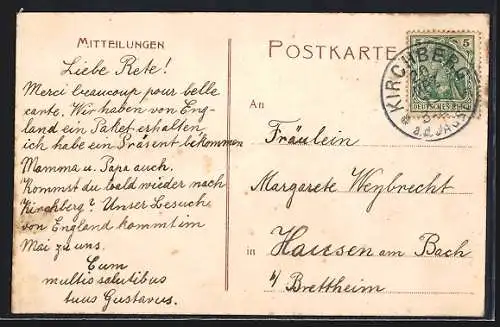 MITTEILUNGEN
Liebe Rete!
Merci beaucoup pour belle
carte. Wir haben von Eng-
land ein Paket erhalten,
ich habe ein Präsent bekommen
Mamma u. Papa auch.
Kommst du bald wieder nach
Kirchberg? Unser Besuche
von England kommt im
Mai zu uns.
Cum
multis salutibus
tuus Gustavus.
POSTKARTE
5 5
DEUTSCHES REICH
KIRCHBERG
a.d. JAGST
An
Fräulein
Margarete Weybrecht
in Hausen am Bach
b/ Brettheim